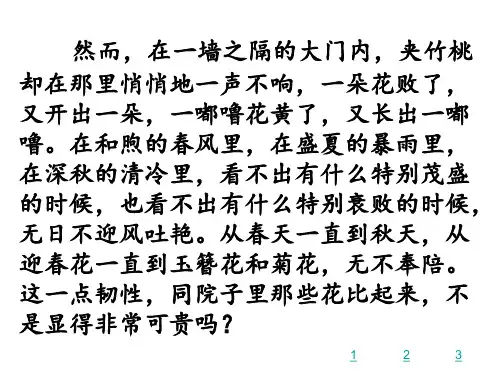 然而，在一墙之隔的大门内，夹竹桃
却在那里悄悄地一声不响，一朵花败了，
又开出一朵，一嘟噜花黄了，又长出一嘟
噜。在和煦的春风里，在盛夏的暴雨里，
在深秋的清冷里，看不出有什么特别茂盛
的时候，也看不出有什么特别衰败的时候，
无日不迎风吐艳。从春天一直到秋天，从
迎春花一直到玉簪花和菊花，无不奉陪。
这一点韧性，同院子里那些花比起来，不
是显得非常可贵吗？
1 2 3